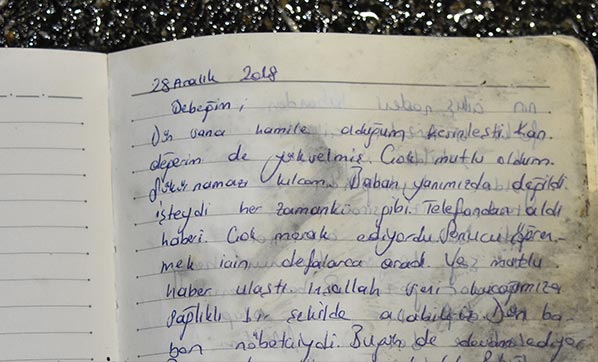 28 Aralık 2018
Bebeğim;
Dün sana hamile olduğum kesinleşti. Kan
değerim de yükselmiş. Çok mutlu oldum.
Şükür namazı kıldım. Baban yanımızda değildi
işteydi her zamanki gibi. Telefondan aldı
haberi. Çok merak ediyordu. Sonucu öğren-
mek için defalarca aradı. Ve mutlu
haber ulaştı. İnşallah seni kucağımıza
sağlıklı bir şekilde alabiliriz. Dün ba-
ban nöbetçiydi. Bugün de devam ediyor